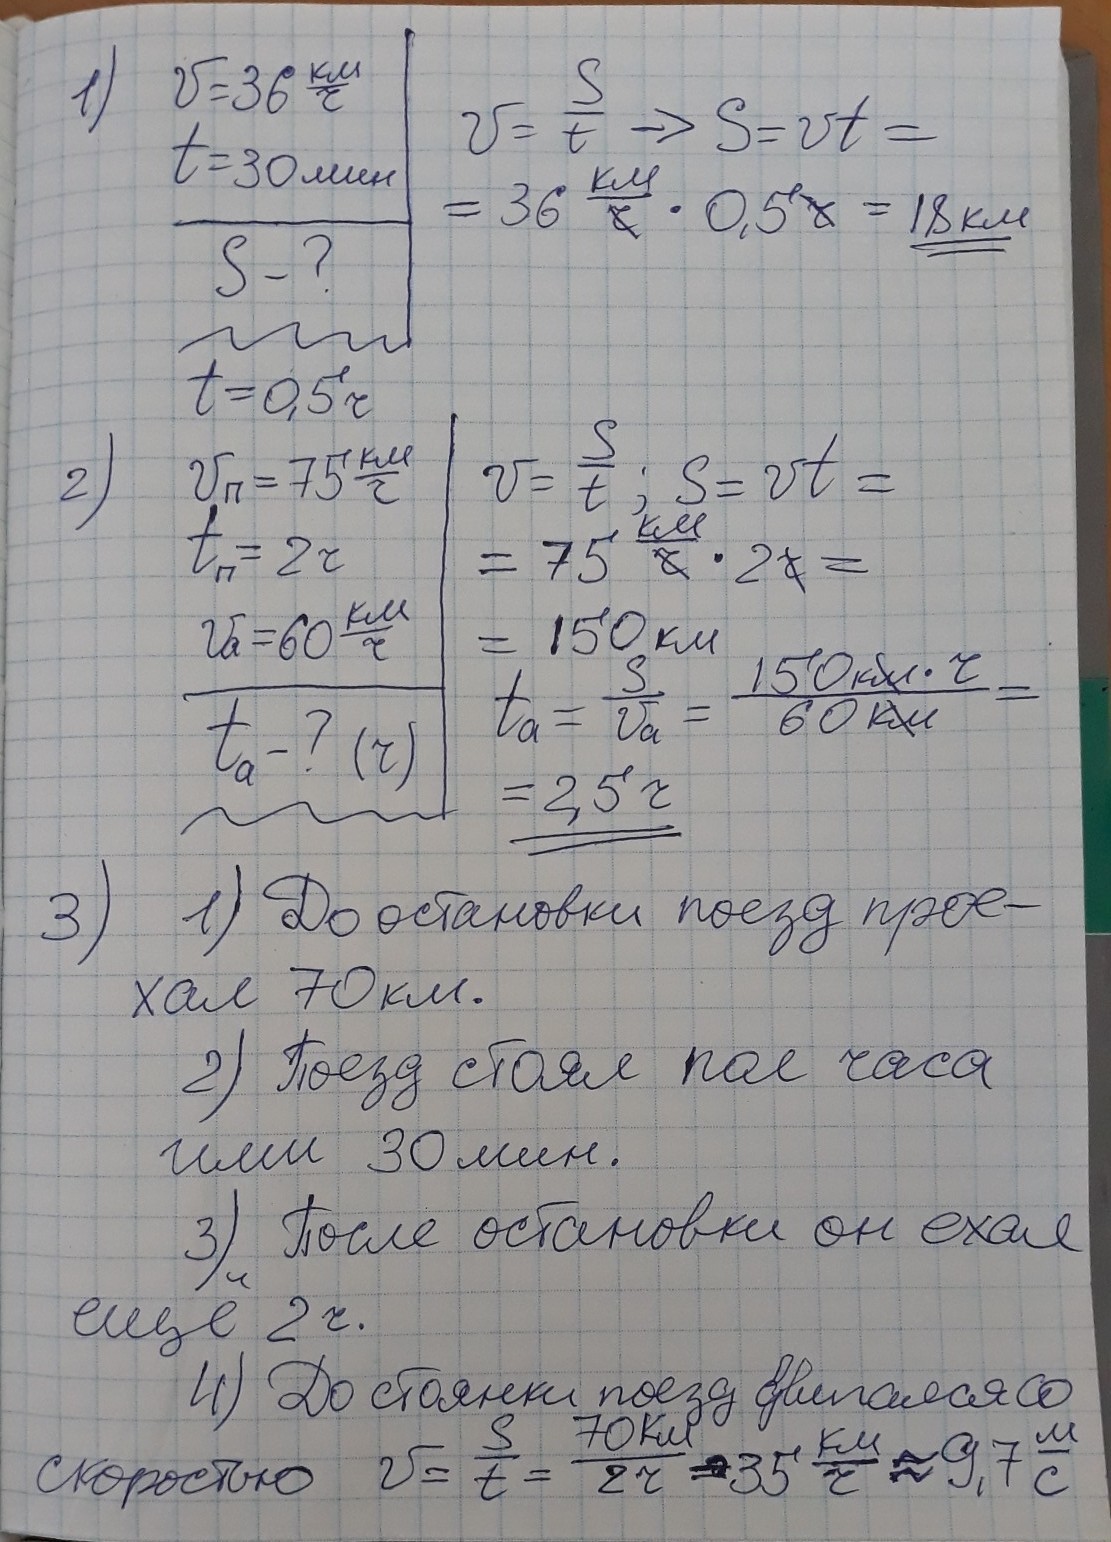 1) v=36 км/ч
t=30мин
S-?
t=0,5ч
v= S/t -> S=vt=
= 36 км/ч · 0,5ч = 18км
2) vп=75 км/ч
tп=2ч
vа=60 км/ч
tа-? (ч)
v= S/t ; S=vt=
= 75 км/ч · 2ч =
= 150км
tа = S/vа = 150км·ч/60км =
=2,5ч
3) 1) До остановки поезд прое-
хал 70км.
2) Поезд стоял пол часа
или 30мин.
3) После остановки он ехал
ещё 2ч.
4) До стоянки поезд двигался со
скоростью v= S/t = 70км/2ч = 35 км/ч ≈ 9,7 м/с